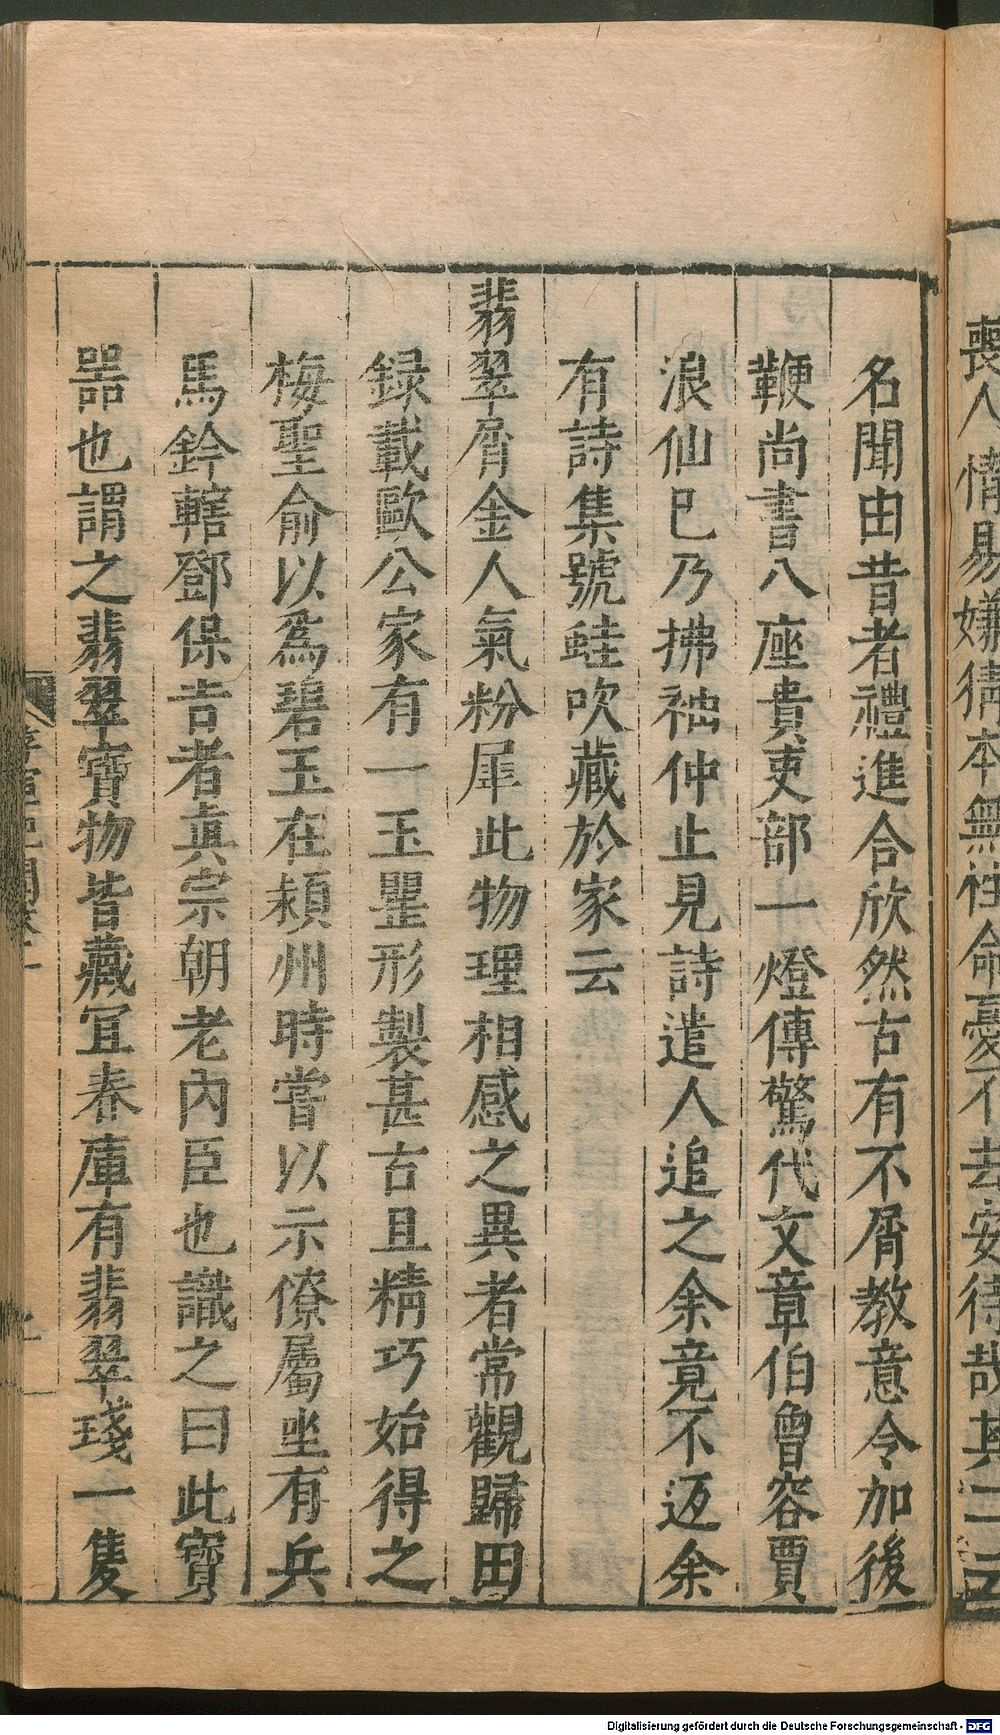 喪人情易嫌猜本無性命憂不去安待哉其二云
名聞由昔者禮進合欣然古有不屑教意令加後
鞭尚書八座貴吏部一燈傳驚代文章伯曾容賈
浪仙巳乃拂袖仲止見詩遣人追之余竟不返余
有詩集號蛙吹藏於家云
翡翠屑金人氣粉犀此物理相感之異者常觀歸田
録載歐公家有一玉罌形製甚古且精巧始得之
梅聖俞以爲碧玉在潁州時嘗以示僚屬坐有兵
馬鈐轄鄧保吉者真宗朝老內臣也識之曰此寶
器也謂之翡翠寶物皆藏宜春庫有翡翠琖一隻
Digitalisierung gefördert durch die Deutsche Forschungsgemeinschaft - DFG